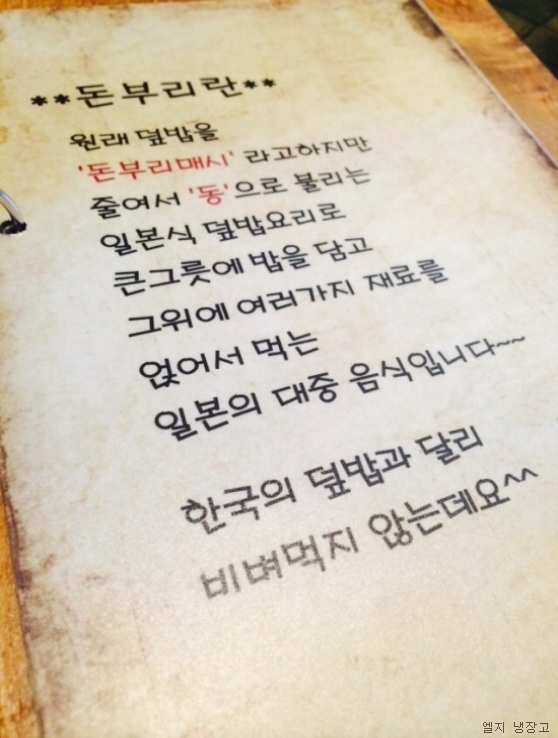 **돈부리란**
원래 덮밥을
'돈부리매시' 라고하지만
줄여서 '동'으로 불리는
일본식 덮밥요리로
큰그릇에 밥을 담고
그위에 여러가지 재료를
얹어서 먹는
일본의 대중 음식입니다~~
한국의 덮밥과 달리
비벼먹지 않는데요^^
엘지 냉장고